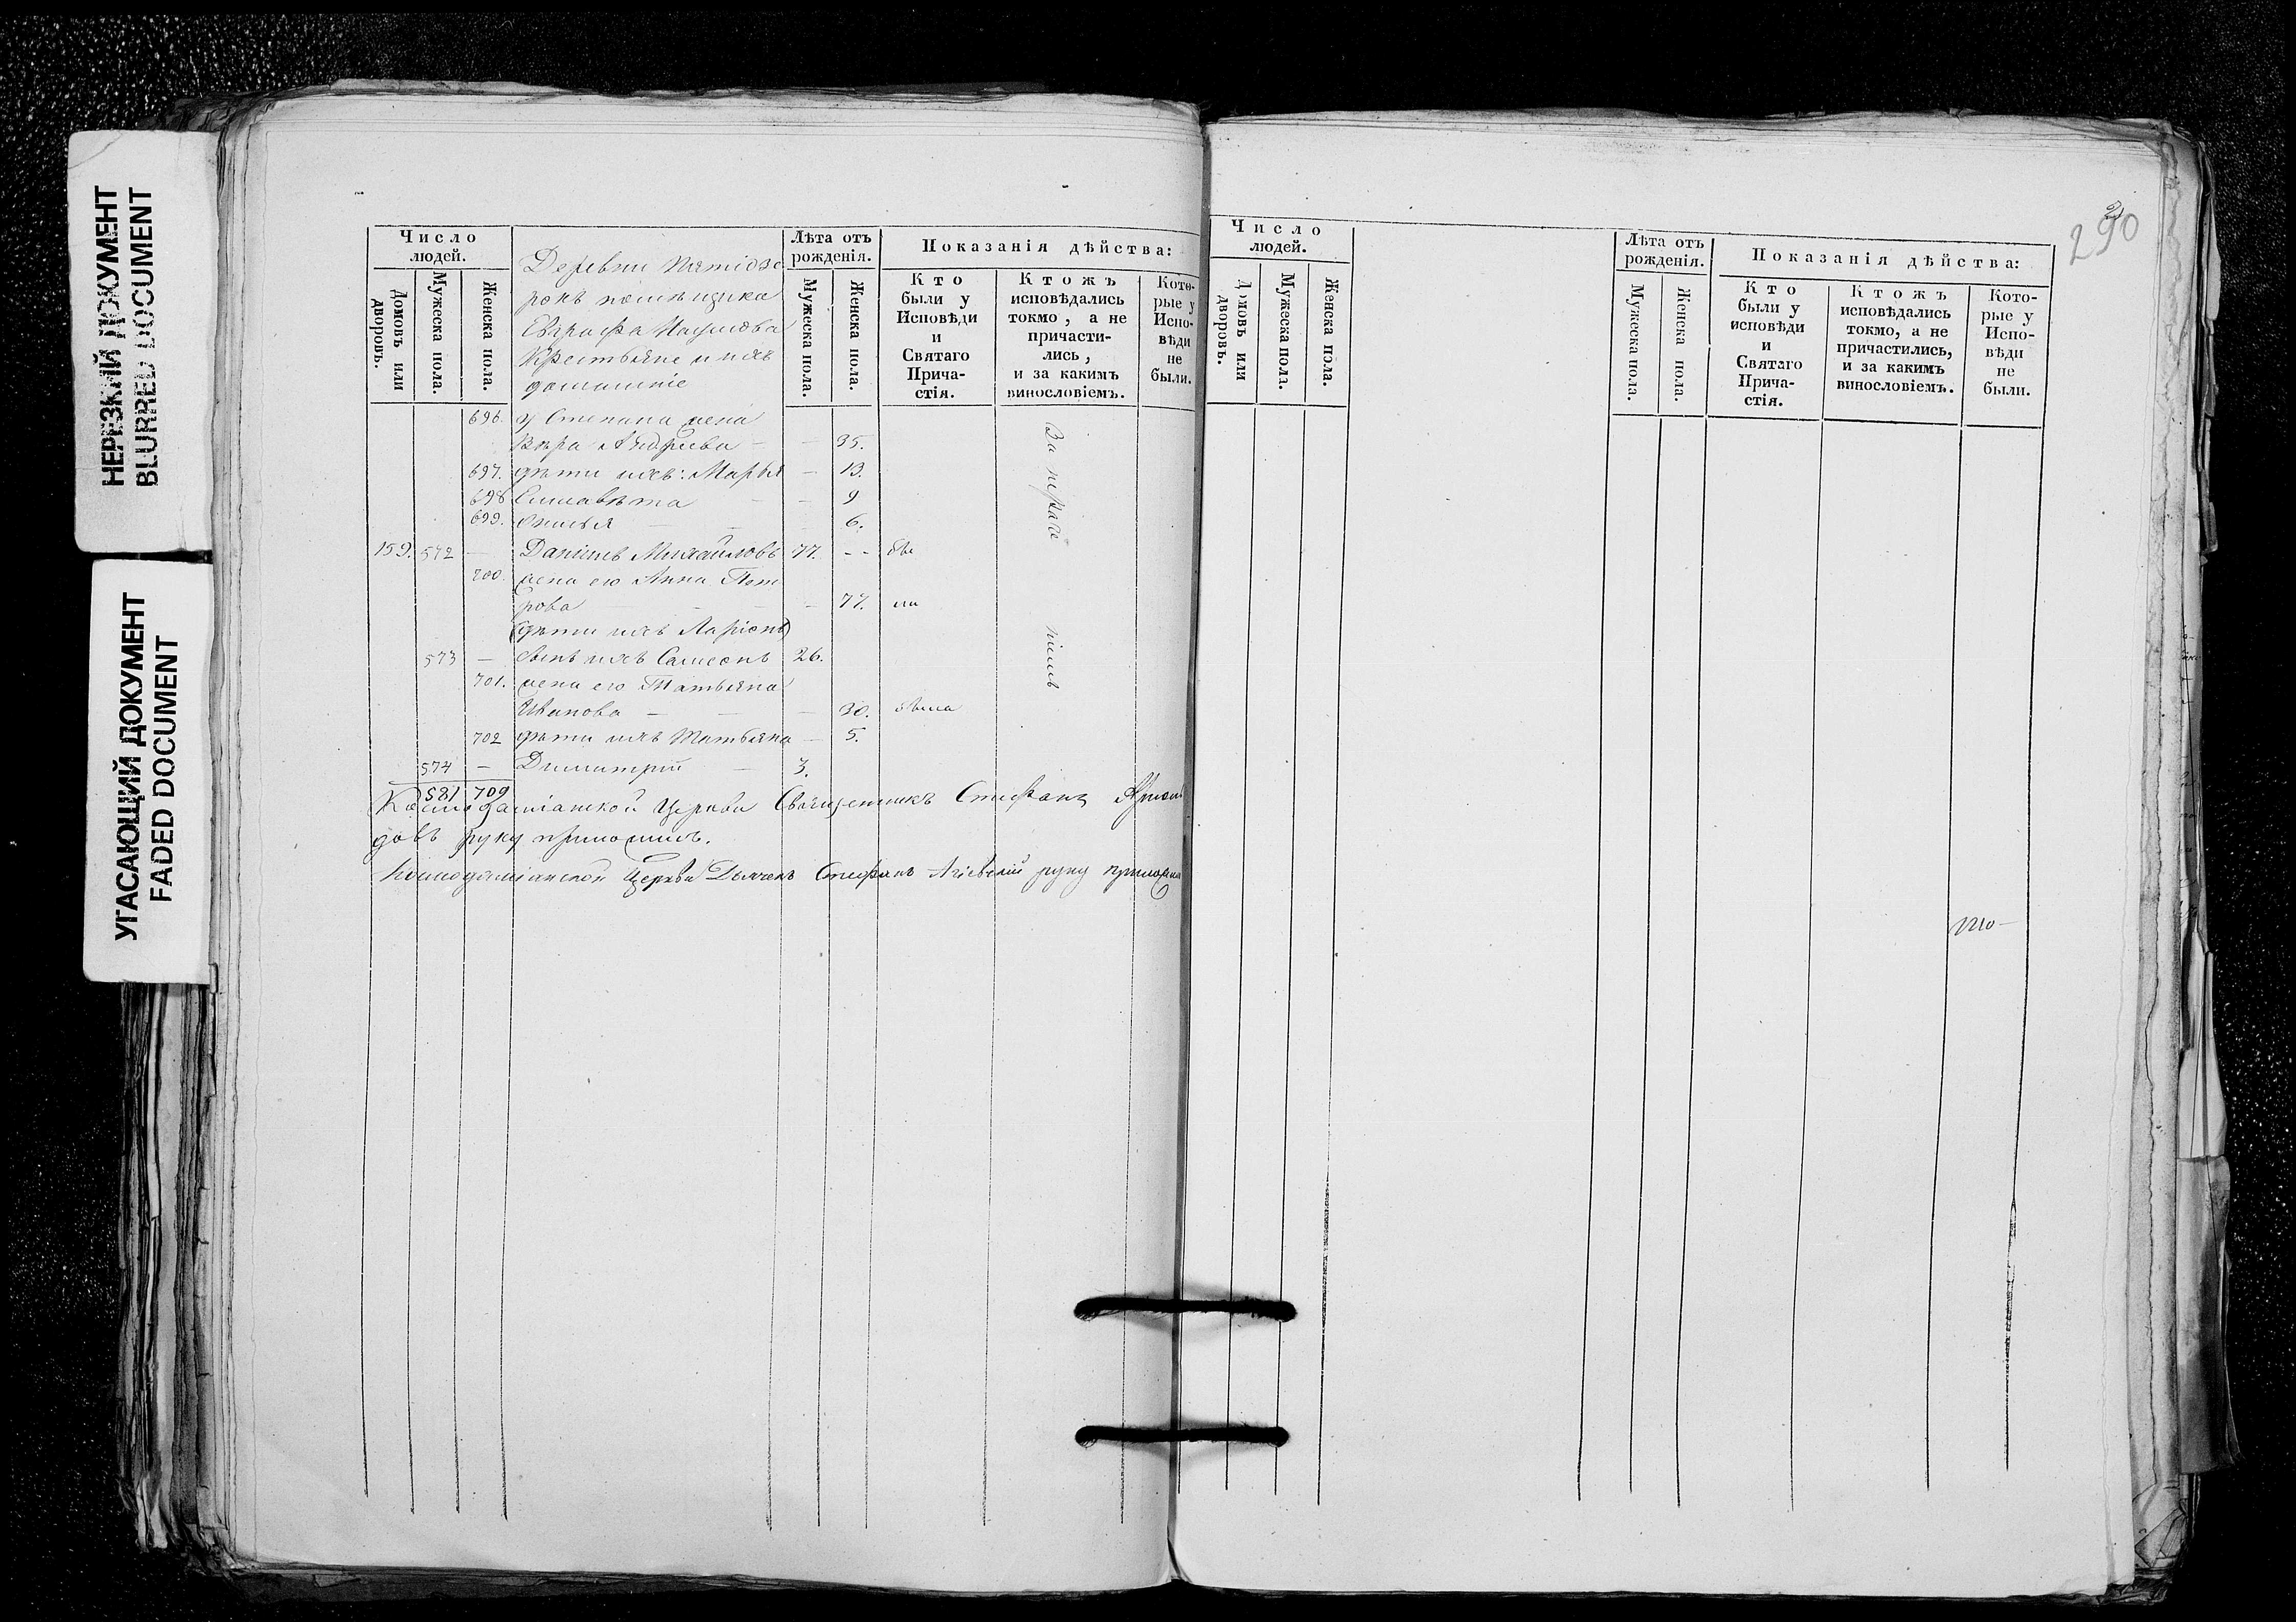 НЕРЕЗКИЙ ДОКУМЕНТ
BLURRED DOCUMENT
УГАСАЮЩИЙ ДОКУМЕНТ
FADED DOCUMENT
Число людей.
Домовъ или дворовъ.
Мужеска пола.
Женска пола.
Деревни
помѣщика
Евграфа
Крестьяне и ихъ
домашніе
Лѣта отъ рожденія.
Мужеска пола.
Женска пола.
Показанія дѣйства:
Кто были у Исповѣди и Святаго Прича-стія.
Ктожъ исповѣдались токмо, а не причасти-лись, и за какимъ винословіемъ.
Кото-рые у Испо-вѣди не были.
696. у Степана жена
Вѣра Андреева — — 35.
697. дѣти ихъ: Марья — 13.
698 Елисавѣта — — 9
699. — — 6.
159. 572 — Данiилъ Михайловъ 77. - - бы
700. жена его Анна Пет
рова — — — 77. ли
(дѣти ихъ Ларіонъ)
573 — сынъ ихъ Самсонъ 26.
701. жена его Татьяна
Иванова — — — 30. была
702 дѣти ихъ Татьяна — 5.
574 — Димитрій — 3.
581 709
За
Космодаміанской Церкви Священникъ Стефанъ
довъ руку приложилъ.
Космодаміанской Церкви Дьячекъ Стефанъ руку приложилъ
290
Число людей.
Домовъ или дворовъ.
Мужеска пола.
Женска пола.
Лѣта отъ рожденія.
Мужеска пола.
Женска пола.
Показанія дѣйства:
Кто были у исповѣди и Святаго Прича-стія.
Ктожъ исповѣдались токмо, а не причастились, и за какимъ винословіемъ.
Кото-рые у Испо-вѣди не были.